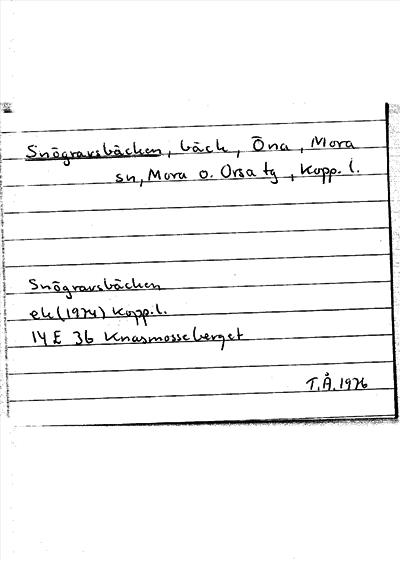 Snögravsbäcken, bäck, Öna, Mora
sn, Mora o. Orsa tg, Kopp. l.
Snögravsbäcken
ek (1974) Kopp. l.
14 E 3b Knasmosseberget
T.Å. 1976